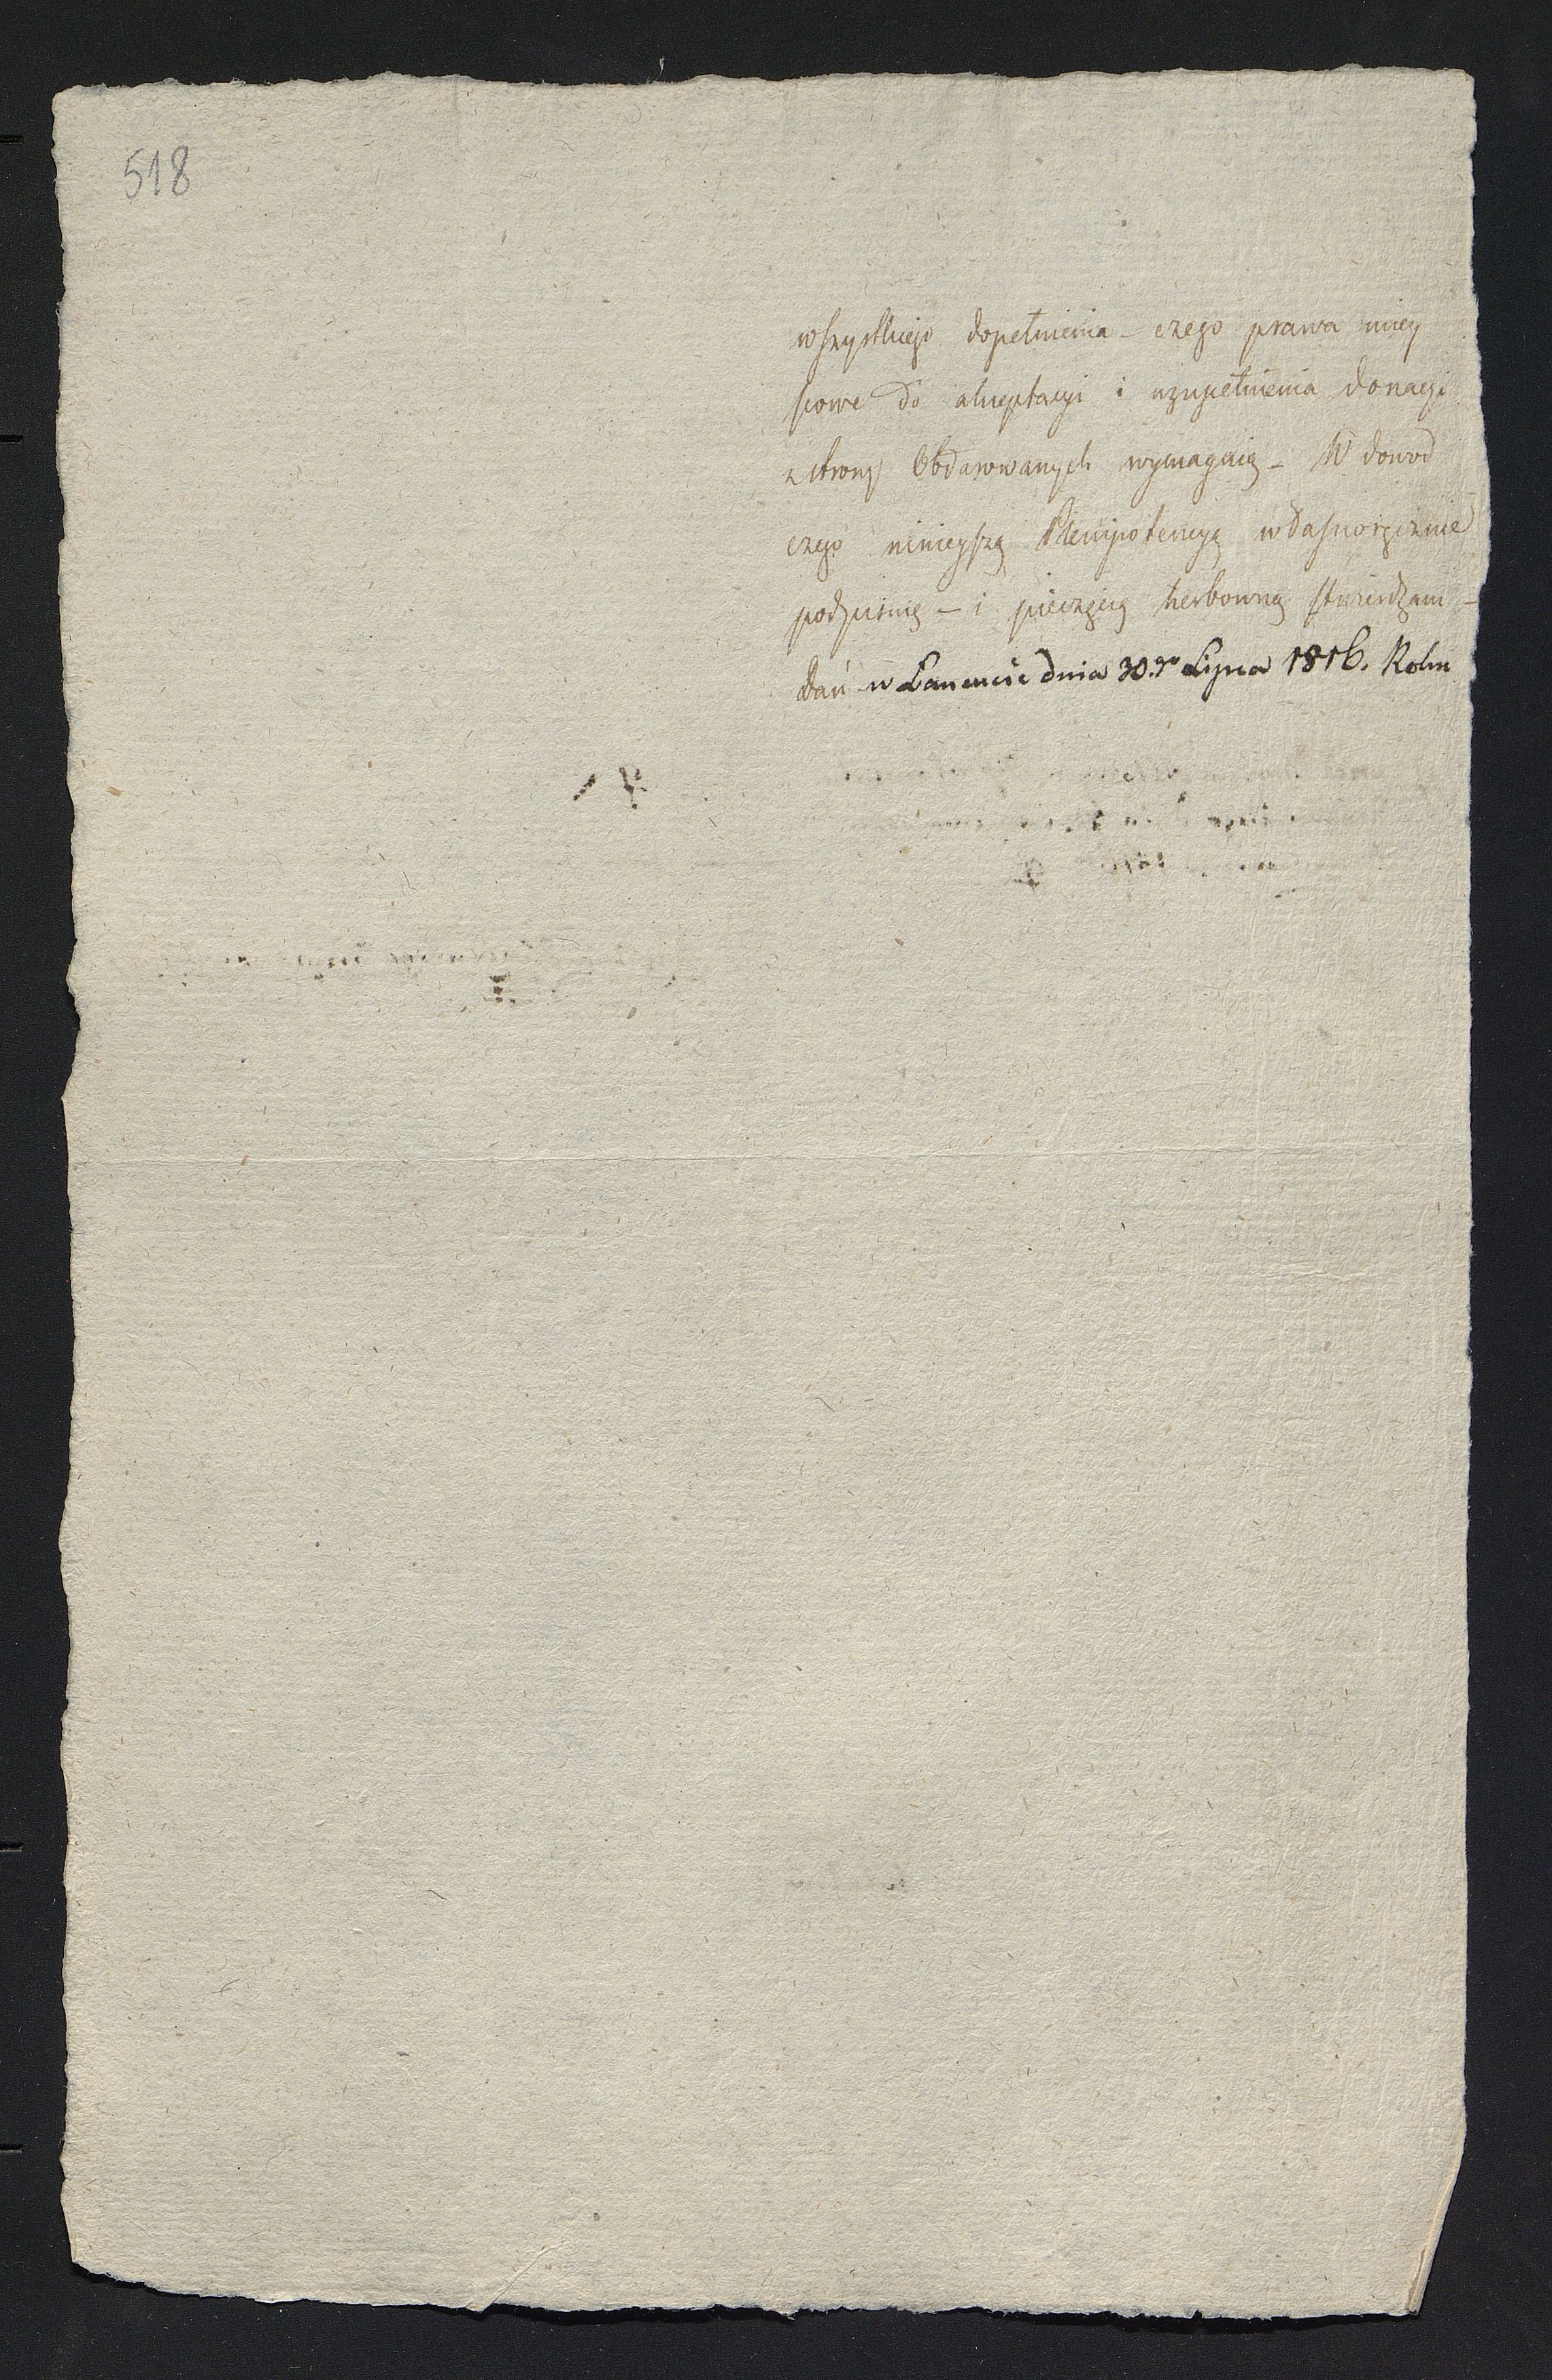 518
wszystkiego dopełnienia – czego prawa miey
scowe do akceptacyi i uzupełnienia donacyi
z strony Obdarowanych wymagaią – W dowod
czego ninieyszą Plenipotencyą własnoręcznie
podpisuię – i pieczęcią herbowną stwierdzam –
Dań w Łancucie dnia 30.go Lipca 1816. Roku